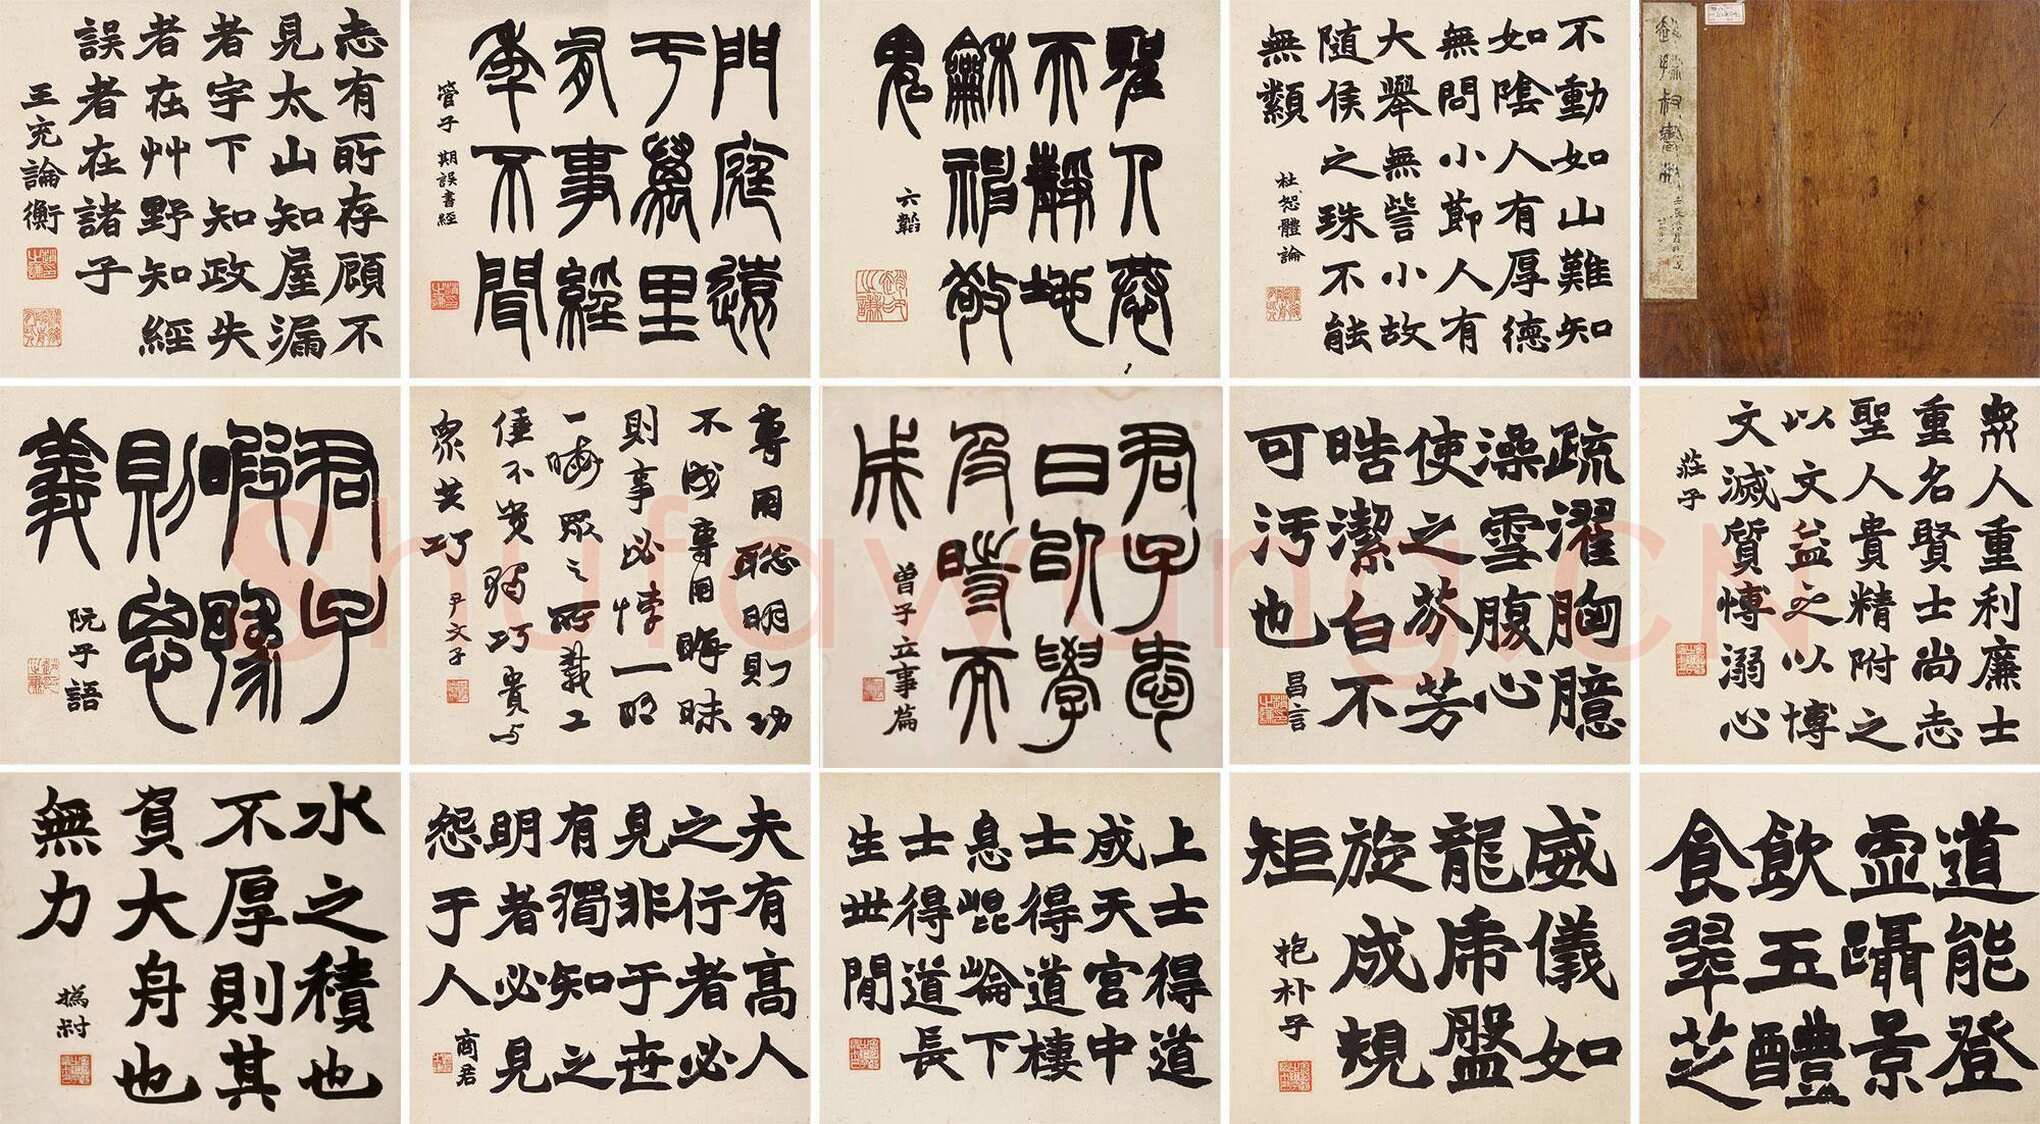 不動如山難知
如陰人有厚德
無問小節人有
大舉無訾小故
隨侯之珠不能
無纇
杜恕體論
聖人恭
天靜地
龢神敬
鬼
六韜
門庭遠
于萬里
有事經
年不聞
管子 期誤書經
志有所存顧不
見太山知屋漏
者宇下知政失
者在艸野知經
誤者在諸子
王充論衡
眾人重利廉士
重名賢士尚志
聖人貴精附之
以文益之以博
文滅質博溺心
莊子
疏濯胸臆
澡雪腹心
使之芬芳
皓潔白不
可污也
昌言
君子愛
日以學
及時而
成
曾子立事篇
專用聰明則功
不成專用晦昧
則事必悖一明
一晦眾之所載工
倕不貴獨巧貴與
眾共巧
尹文子
君子
暇豫
則思
義
阮子語
道能登
虛躡景
飲五醴
食翠芝
威儀如
龍虎盤
旋成規
矩
抱朴子
上士得道
成天宮中
士得道棲
息崑崙下
士得道長
生世閒
夫有高人
之行者必
見非于世
有獨知之
明者必見
怨于人
商君
水之積也
不厚則其
負大舟也
無力
撝叔
Shufawang.CN